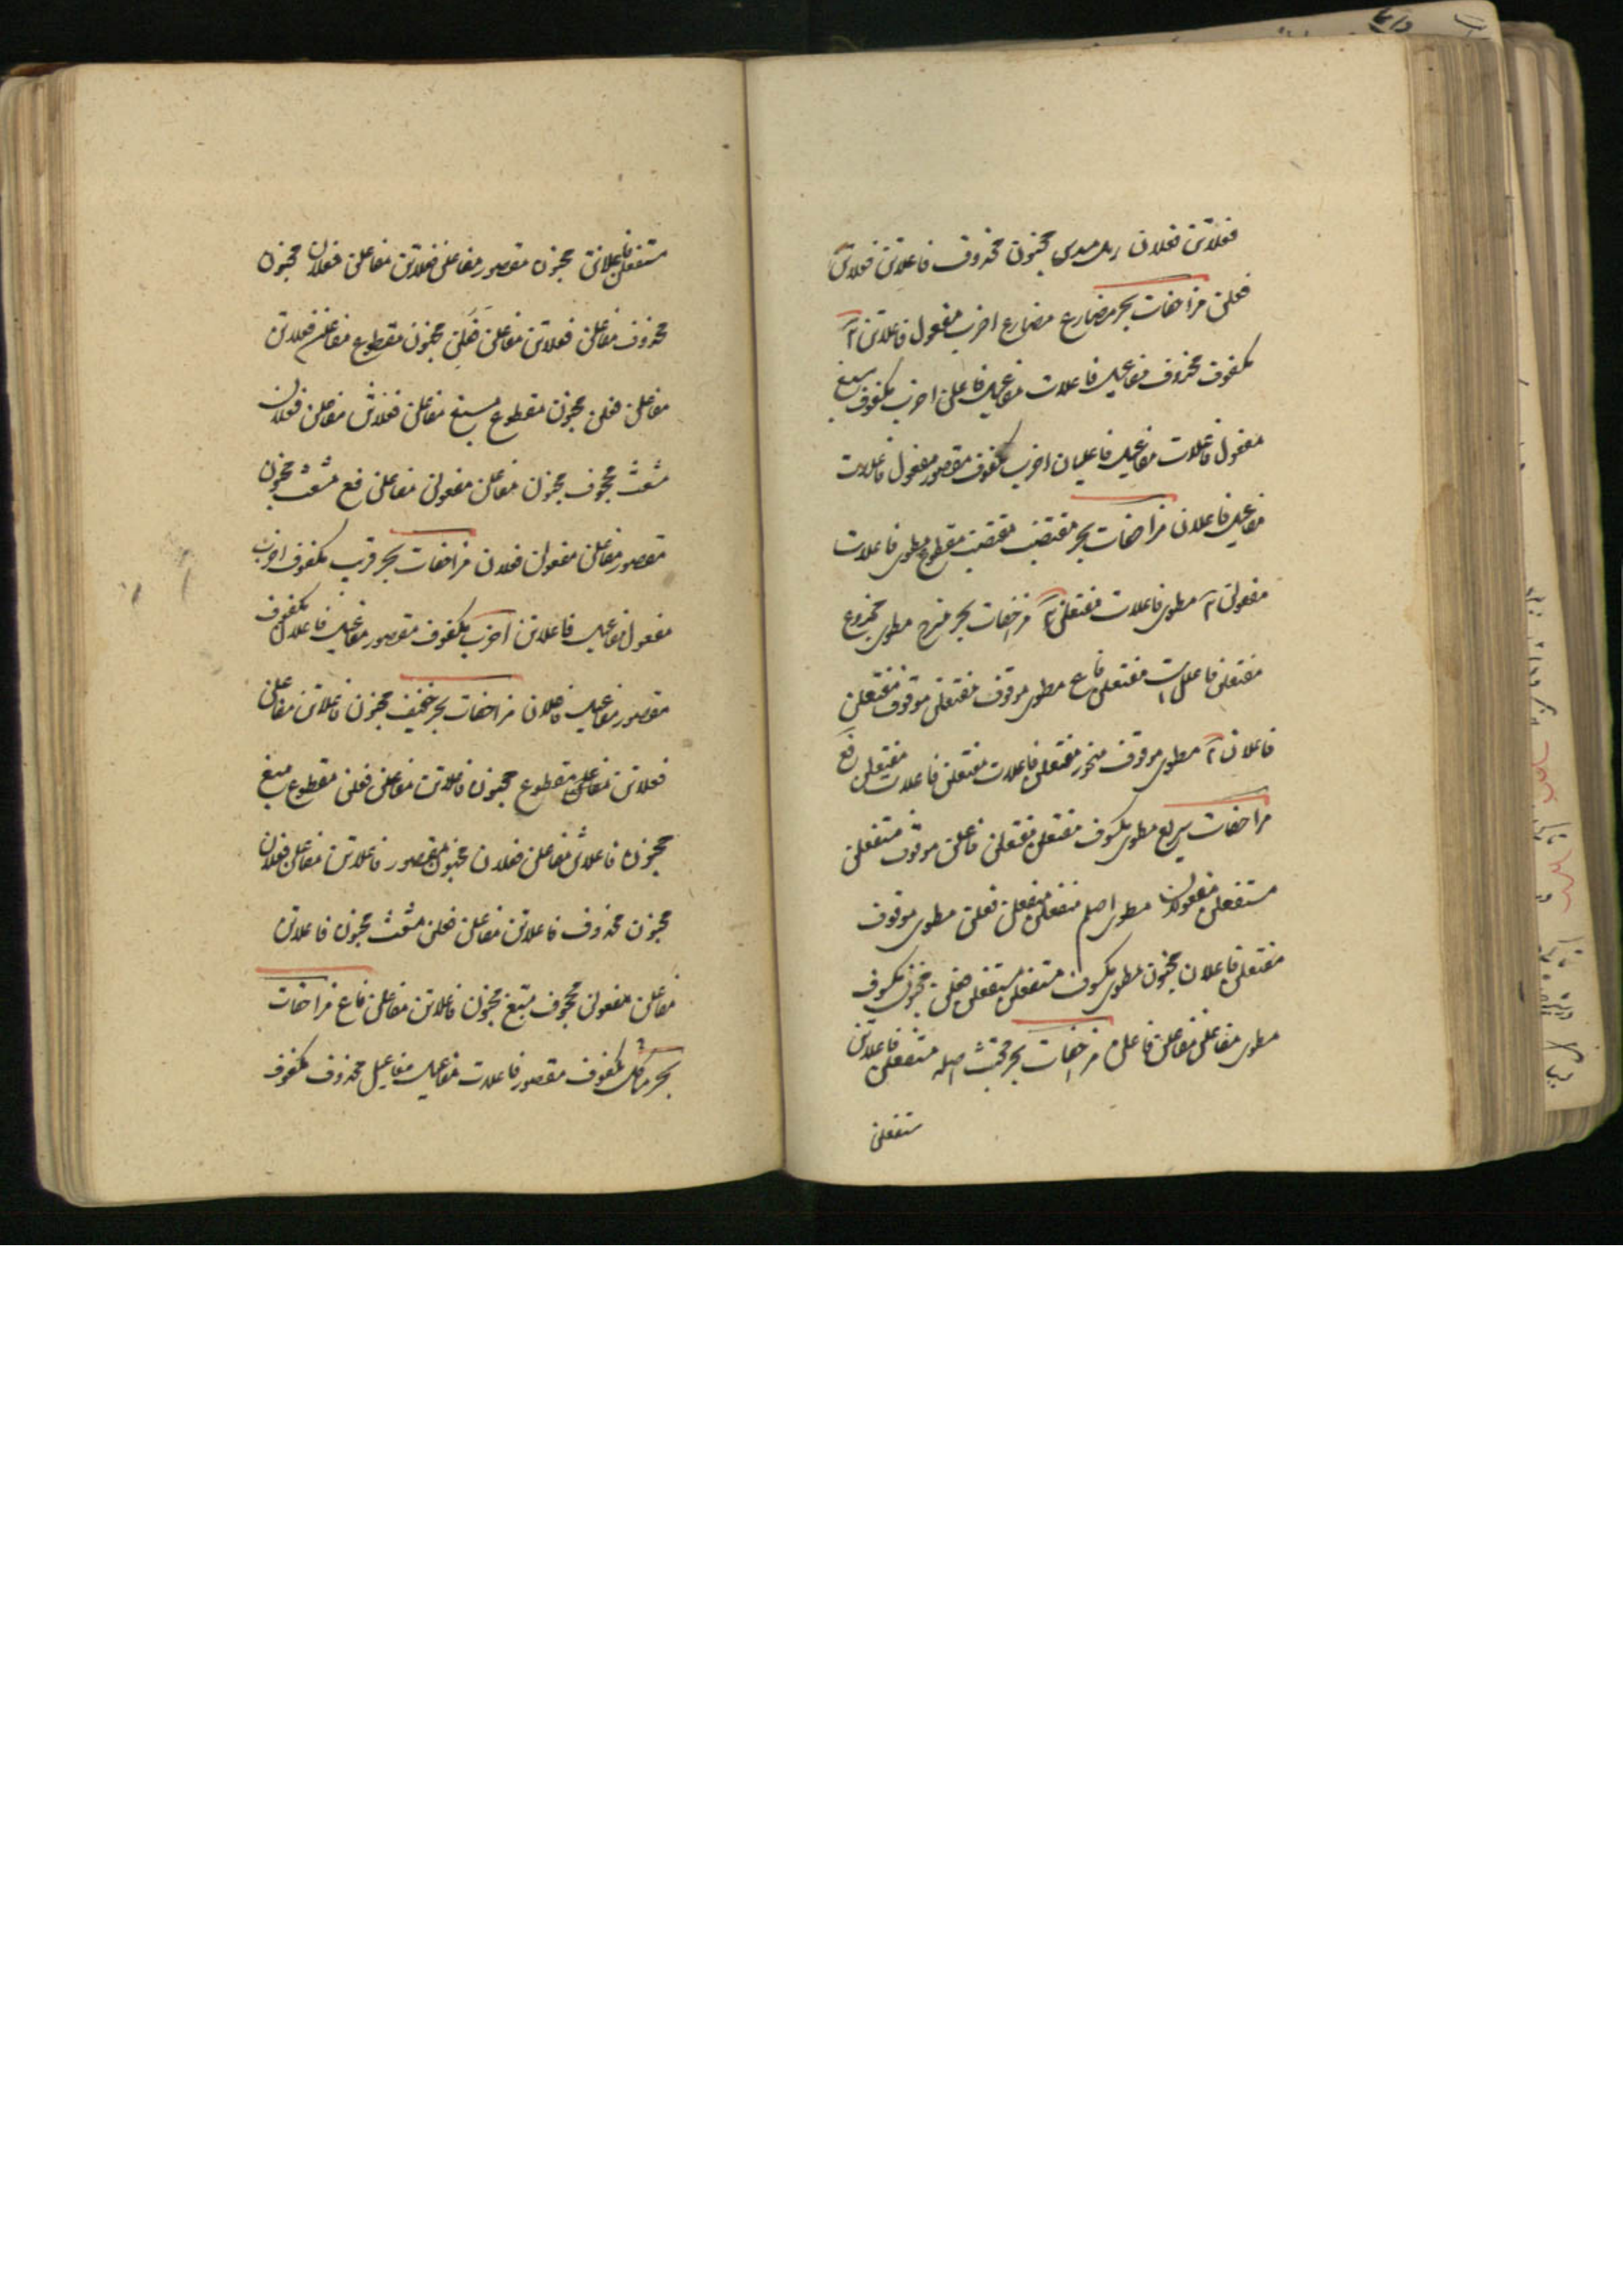 فعلاتن فعلان رمل مسدس مخبون محذوف فاعلاتن فعلاتن
فعلن مزاحفات بحر مضارع مضارع اخرب مفعول فاعلاتن ۲
مکفوف محذوف مفاعیل فاعلات مفاعیل فاعلن اخرب مکفوف مسبغ
مفعول فاعلات مفاعیل فاعلیان اخرب مکفوف مقصور مفعول فاعلات
مفاعیل فاعلان مزاحفات بحر مقتضب مقتضب مقطوع مطوی فاعلات
مفعولن ۲ مطوی فاعلات مفتعلن ۲ مزاحفات بحر منسرح مطوی مجدوع
مفتعلن فاعلات مفتعلن فاع مطوی موقوف مفتعلن موقوف مفتعلن
فاعلان ۲ مطوی موقوف منحور مفتعلن فاعلات مفتعلن فاعلات مفتعلن فع
مزاحفات سریع مطوی مکسوف مفتعلن مفتعلن فاعلن موقوف مستفعلن
مستفعلن مفعولان مطوی اصلم مفتعلن مفتعلن فعلن مطوی موقوف
مفتعلن فاعلان مخبون مطوی مکسوف مستفعلن مستفعلن فعلن مخبون مکسوف
مطوی مفاعلن مفاعلن فاعلن مزاحفات بحر مجتث اصله مستفعلن فاعلاتن
مستفعلن
مستفعلن فاعلاتن مخبون مقصور مفاعلن فعلاتن مفاعلن فعلان مخبون
محذوف مفاعلن فعلاتن مفاعلن فعلن مخبون مقطوع مفاعلن فعلاتن
مفاعلن فعلن مخبون مقطوع مسبغ مفاعلن فعلاتن مفاعلن فعلان
مشعث مجحوف مخبون مفاعلن مفعولن مفاعلن فع مشعث مخبون
مقصور مفاعلن مفعولن فعلان مزاحفات بحر قریب مکفوف اخرب
مفعول مفاعیل فاعلاتن اخرب مکفوف مقصور مفاعیل فاعلان مکفوف
مقصور مفاعیل فاعلان مزاحفات بحر خفیف مخبون فاعلاتن مفاعلن
فعلاتن مفاعلن مقطوع مخبون فاعلاتن مفاعلن فعلن مقطوع مسبغ
مخبون فاعلاتن مفاعلن فعلان مخبون مقصور فاعلاتن مفاعلن فعلان
مخبون محذوف فاعلاتن مفاعلن فعلن مشعث مخبون فاعلاتن
مفاعلن مفعولن مجحوف مسبغ مخبون فاعلاتن مفاعلن فاع مزاحفات
بحر مشاکل مکفوف مقصور فاعلات مفاعیل مفاعیل محذوف مکفوف